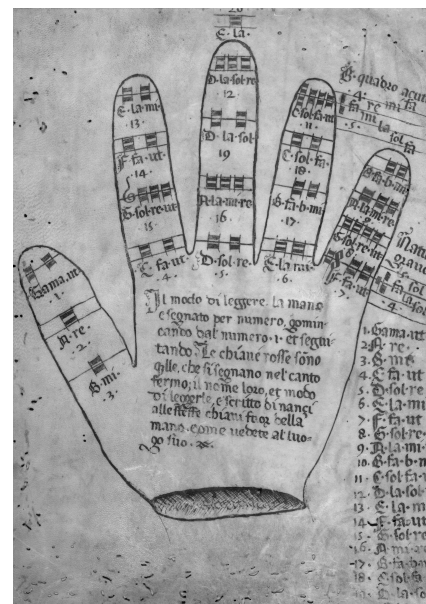 20
E·la·
D·la·sol·re·
12·
E·la·mi·
13·
F·fa·ut·
14·
G·sol·re·ut·
15·
C·fa·ut·
·4·
D·la·sol·
19
A·la·mi·re·
16·
D·sol·re·
·5·
C·sol·fa·ut·
11
C·sol·fa·
18·
B·fa·b·mi·
17·
E·la·mi·
·6·
B·fa·b·mi·
A·la·mi·re·
F·fa·ut·
·7·
Gama·ut·
1·
A·re·
2·
B·mi·
3·
B·quadro acut
·4· fa re mi fa
·5· fa mi la sol fa
·4·
Il modo di leggere la mano
e segnato per numero, comin-
cando dal numero ·1· et segui-
tando· Le chiaue rosse sono
qlle, che si segnano nel canto
fermo; il nome loro, et modo
di leggerle, e scritto dinanci
alle stesse chiaui fuor della
mano· come uedete al luo-
go suo·
1· Gama·ut·
2· A·re·
3· B·mi·
4· C·fa·ut
5· D·sol·re
6· E·la·mi
7· F·fa·ut
8· G·sol·re·
9· A·la·mi·
10· B·fa·b·m
11· C·sol·fa·
12· D·la·sol·
13· E·la·m
14· F·fa·ut
15· G·sol·re·
16· A·mi·re
17· B·fa·b·
18· C·sol·fa
19· D·la·so